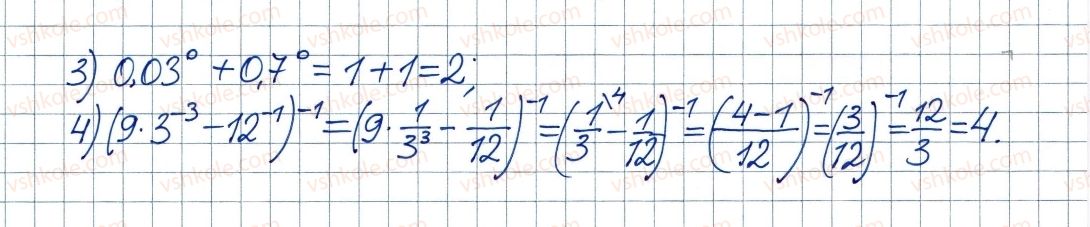 3) 0,03⁰ + 0,7⁰ = 1 + 1 = 2;
4) (9 · 3⁻³ − 12⁻¹)⁻¹ = (9 · 1/3³ − 1/12)⁻¹ = (1/3\⁴ − 1/12)⁻¹ = ((4−1)/12)⁻¹ = (3/12)⁻¹ = 12/3 = 4.